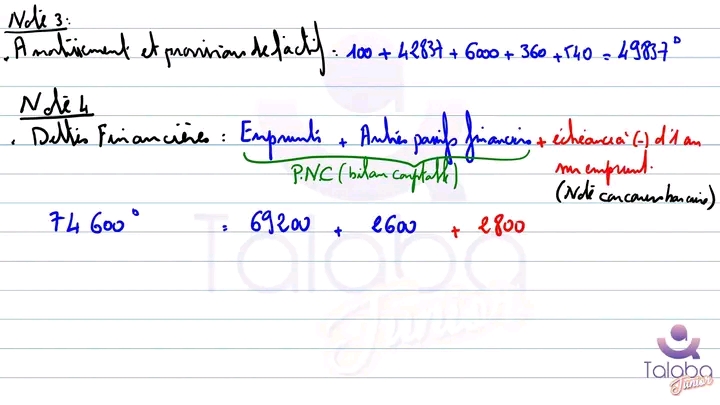 Note 3:
. Amortissement et provision de l'actif : 100 + 42837 + 6000 + 360 + 540 = 49837 D
Note 4
. Dettes Financières : Emprunts + Autres passifs financiers + échéance à (-) d'1 an
sur emprunt.
P.N.C (bilan comptable)
(Note concours bancaire)
74 600 D = 69200 + 2600 + 2800
Talaba
Junior
Talaba
Junior